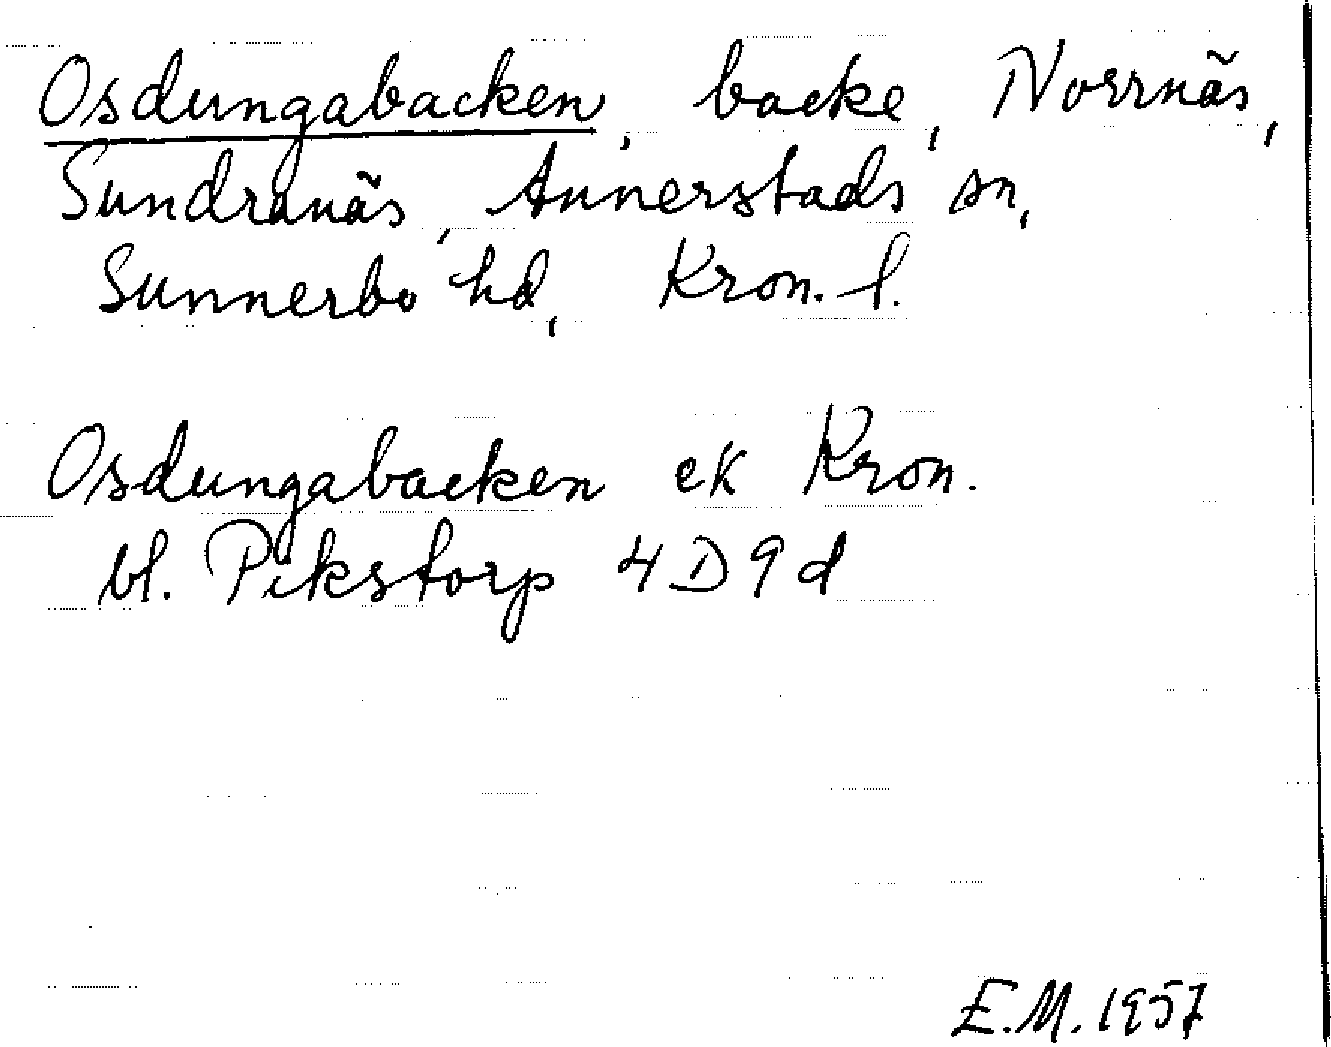 Osdungabacken, backe, Norrnäs,
Sundranäs, Annerstads sn,
Sunnerbo hd, Kron. l.
Osdungabacken ek Kron.
bl. Pikstorp 4D9d
E.M. 1957